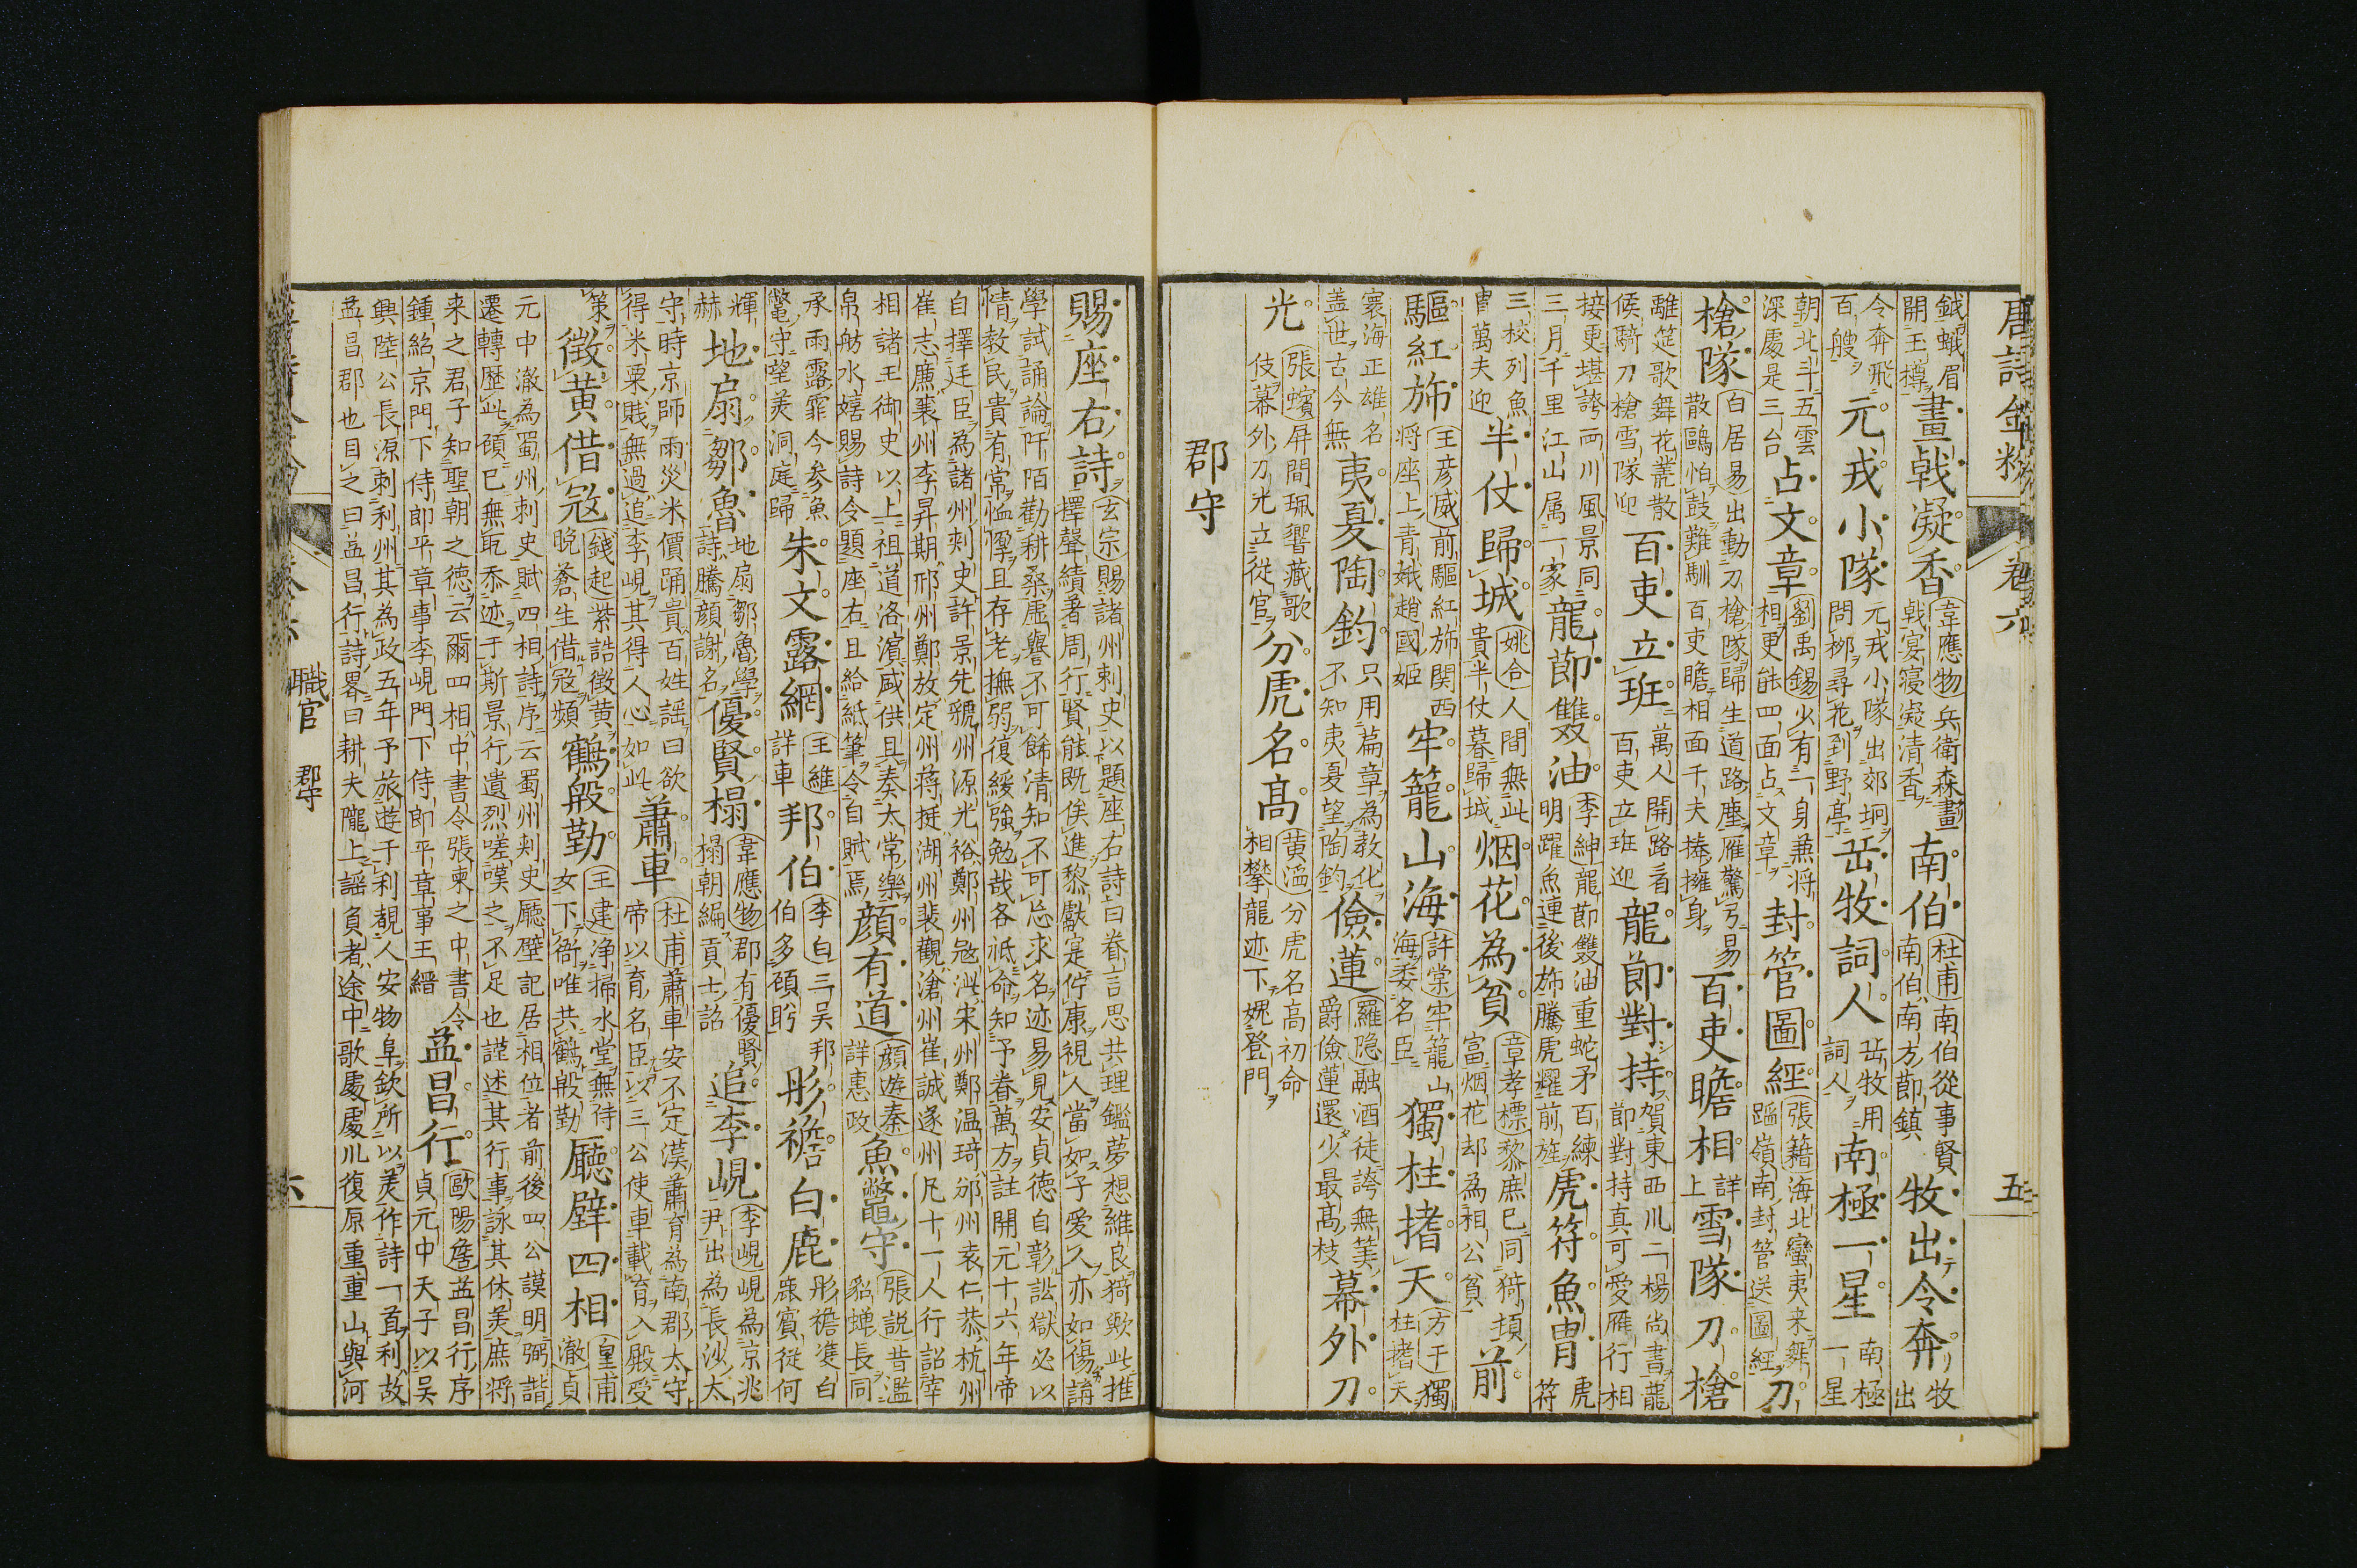 唐詩金粉　卷六　五
鉞蛾眉開玉樽畫戟凝香韋應物兵衛森畫戟宴寢凝清香南伯杜甫南伯從事賢南伯南方節鎮牧出令奔牧出
令奔飛百艘元戎小隊元戎小隊出郊坰問栁尋花到野亭岳牧詞人岳牧用詞人南極一星南極一星
朝北斗五雲深處是三台占文章劉禹錫少有一身兼将相更能四面占文章封管圖經張籍海北蠻夷来舞蹈嶺南封管送圖經刀
槍隊白居易出動刀槍隊歸生道路塵雁驚弓易散鷗怕鼓難馴百吏瞻相面千夫捧擁身百吏瞻相詳上雪隊刀槍
離筵歌舞花叢散候騎刀槍雪隊迎百吏立班萬人開路看百吏立班迎龍節對持賀東西川二楊尚書龍節對持真可愛雁行相
接更堪誇兩川風景同三月千里江山属一家龍節雙油李紳龍節雙油重蛇矛百練明躍魚連後旆騰虎耀前旌虎符魚冑虎符
三校列魚冑萬夫迎半仗歸城姚合人間無此貴半仗暮歸城烟花為貧章孝標黎庶已同猗頓富烟花却為相公貧前
驅紅旆王彦威前驅紅旆関西将座上青娥趙國姬牢籠山海許棠牢籠山海委名臣獨柱搘天方干獨柱搘天
寰海正雄名盖世古今無夷夏陶鈞只用篇章為教化不知夷夏望陶鈞儉蓮羅隐融酒徒誇無筭爵儉蓮還少最高枝幕外刀
光張蠙屏間珮響藏歌伎幕外刀光立從官分虎名高黄滔分虎名高初命相攀龍迹下愧登門
郡守
賜座右詩玄宗賜諸州刺史以題座右詩曰眷言思共理鑑夢想維良猗歟此推擇聲績著周行賢能既俟進黎獻寔佇康視人當如子愛久亦如傷講
學試誦論阡陌勸耕桑虚譽不可飾清知不可忘求名迹易見安貞德自彰訟獄必以情教民貴有常恤惸且存老撫弱復綏強勉哉各祇命知予眷萬方註開元十六年帝
自擇廷臣為諸州刺史許景先虢州源光裕鄭州寇泚宋州鄭温琦邠州袁仁恭杭州崔志廉襄州李昇期邢州鄭放定州蒋挺湖州裴觀滄州崔誠遂州凡十一人行詔宰
相諸王御史以上祖道洛濱盛供具奏太常樂帛舫水嬉賜詩令題座右且給紙筆令自賦焉顔有道顔遊秦詳惠政魚鼈守張説昔濫貂蝉長同
承雨露霏今参魚鼈守望美洞庭歸朱文露網王維詳車邦伯李白三吴邦伯多碩盻彤襜白鹿彤襜雙白鹿賓從何
輝赫地扇鄒魯地扇鄒魯學詩騰顔謝名優賢榻韋應物郡有優賢榻朝編貢士詔追李峴李峴峴為京兆尹出為長沙太
守時京師雨災米價踊貴百姓謡曰欲得米粟賤無過追李峴其得人心如此蕭車杜甫蕭車安不定漢蕭育為南郡太守帝以育名臣以三公使車載育入殿受
策徴黄借寇錢起紫誥徴黄晩蒼生借寇頻鶴般勤王建浄掃水堂無侍女下衙唯共鶴般勤廳壁四相皇甫澈貞
元中澈為蜀州刺史賦四相詩序云蜀州刾史廳壁記居相位者前後四公謨明弼諧遷轉歴此頗已無忝迹于斯景行遺烈嗟嘆之不足也謹述其行事詠其休美庶将
来之君子知聖朝之徳云爾四相中書令張柬之中書令鍾紹京門下侍郎平章事李峴門下侍郎平章事王縉益昌行歐陽詹益昌行序貞元中天子以吴
興陸公長源刺利州其為政五年予旅遊于利覩人安物阜欽所以美作詩一首利故益昌郡也目之曰益昌行詩畧曰耕夫隴上謡負者途中歌處處川復原重重山與河
職官　郡守　六